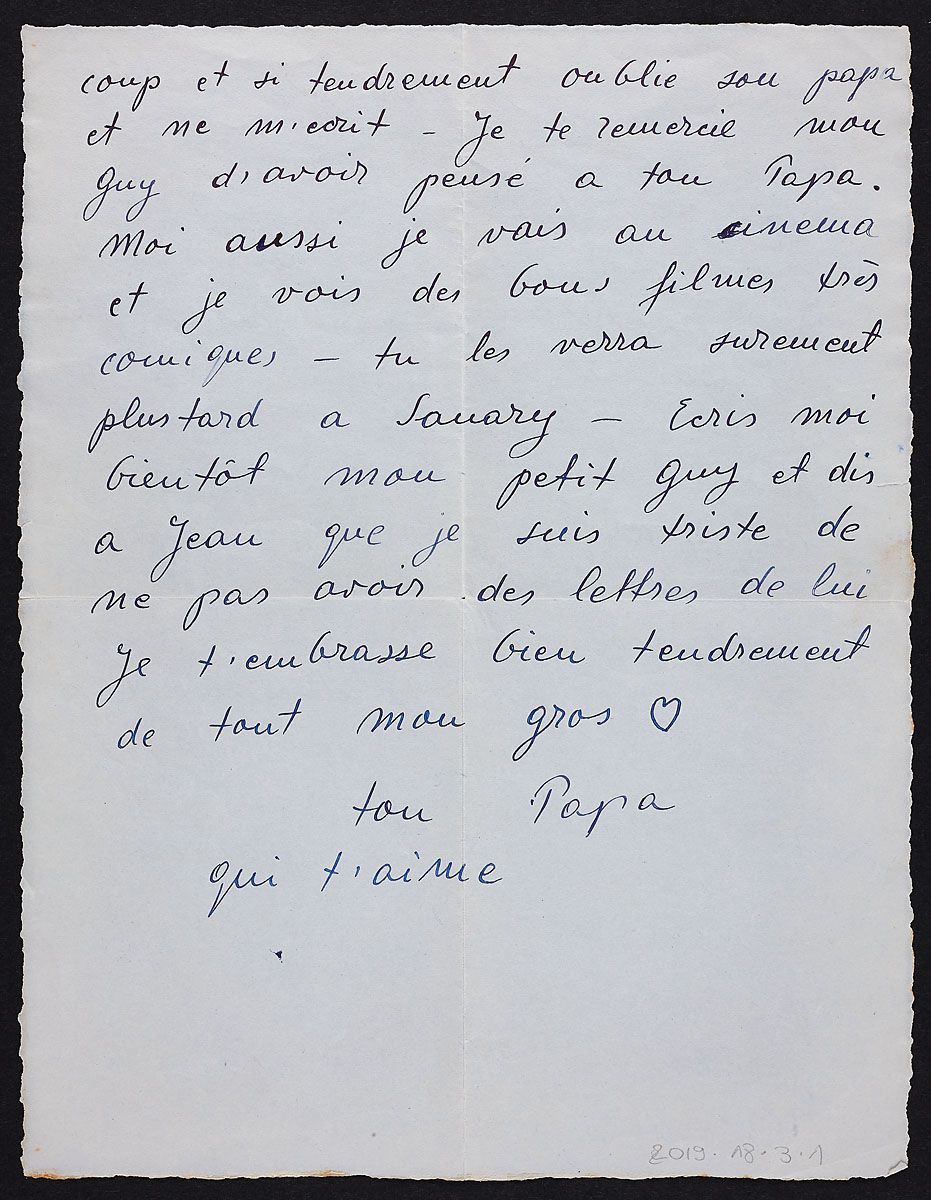 coup et si tendrement oublie son papa
et ne m'ecrit - Je te remercie mon
Guy d'avoir pensé a ton Papa.
Moi aussi je vais au cinema
et je vois des bons filmes très
comiques - tu les verra surement
plus tard a Sanary - Ecris moi
bientôt mon petit Guy et dis
a Jean que je suis triste de
ne pas avoir des lettres de lui
Je t'embrasse bien tendrement
de tout mon gros ♡
ton Papa
qui t'aime
2019.18.3.1